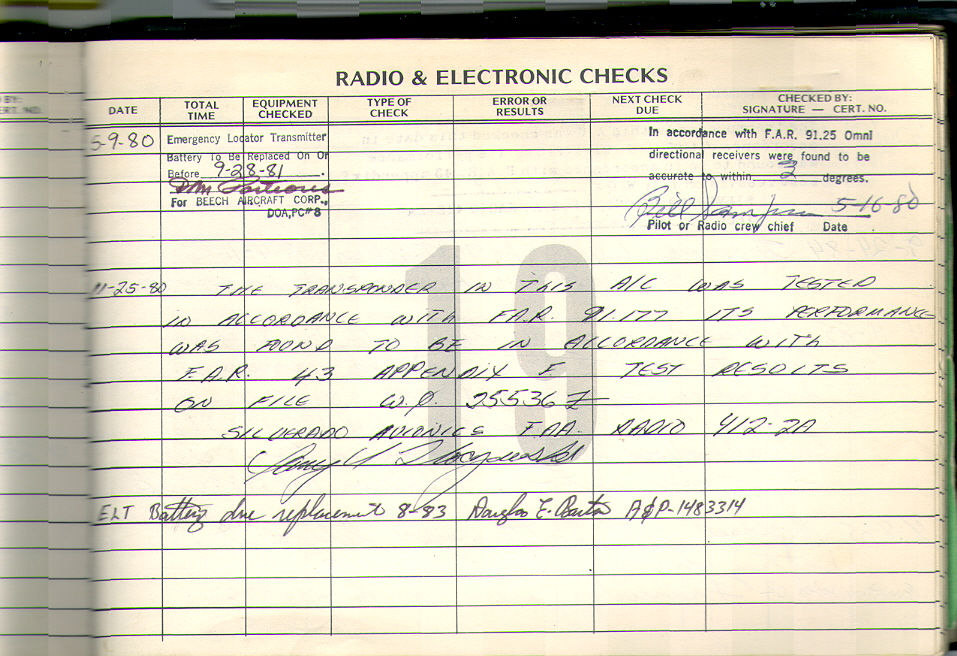 RADIO & ELECTRONIC CHECKS
DATE TOTAL TIME EQUIPMENT CHECKED TYPE OF CHECK ERROR OR RESULTS NEXT CHECK DUE CHECKED BY: SIGNATURE — CERT. NO.
5-9-80 Emergency Locator Transmitter
Battery To Be Replaced On Or
Before 9-28-81.
For BEECH AIRCRAFT CORP.,
DOA, PC#8
In accordance with F.A.R. 91.25 Omni
directional receivers were found to be
accurate to within 2 degrees.
Bill 5-16-80
Pilot or Radio crew chief Date
19
11-25-80 THE TRANSPONDER IN THIS A/C WAS TESTED
IN ACCORDANCE WITH F.A.R. 91.177 ITS PERFORMANCE
WAS FOUND TO BE IN ACCORDANCE WITH
F.A.R. 43 APPENDIX F TEST RESULTS
ON FILE W.O. 25536
SILVERADO AVIONICS F.AA. RADIO 412-2A
ELT Battery due replacement 8-83 Douglas E. A&P-1483314